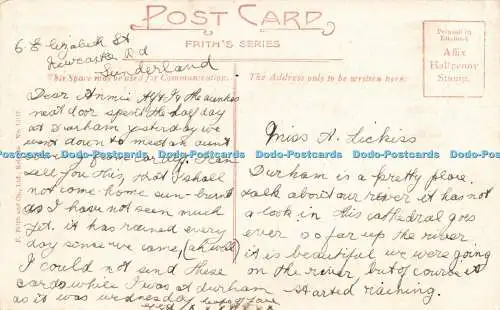 POST CARD
FRITH'S SERIES
6. Elizabeth St
Newcastle Rd
Sunderland
Printed in
England
Affix
Halfpenny
Stamp.
This Space may be used for Communication.
The Address only to be written here.
Dear Annie
next door spent the day
at Durham yesterday we
went down to meet an aunt
tell you this, that I shall
not come home sun-burnt
as I have not seen much
yet. it has rained every
day since we came, (ah well)
I could not send these
cards while I was at durham
as it was wednesday heaps of love
Miss A. Lickiss
Durham is a pretty place.
talk about our river it has not
a look in this cathedral goes
ever so far up the river
it is beautiful we were going
on the river but of course it
started raining.
F. Frith and Co., Ltd., Reigate.
Dodo-Postcards Dodo-Postcards Dodo-Postcards Dodo-Postcards Dodo-Postcards